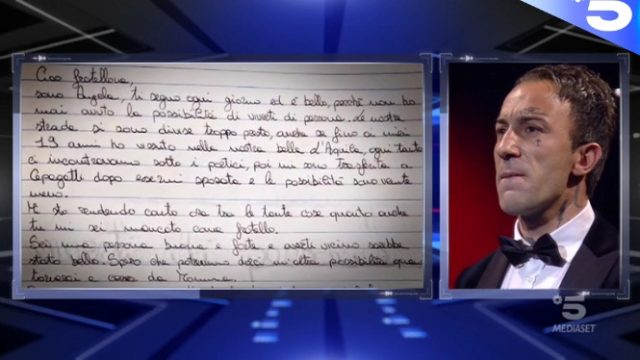 Ciao fratellone,
sono Angela, ti seguo ogni giorno ed è bello, perché non ho
mai avuto la possibilità di viverti di persona. Le nostre
strade si sono divise troppo presto, anche se fino ai miei
19 anni ho vissuto nella nostra bella d'Aquila, ogni tanto
ci incontravamo sotto i portici, poi mi sono trasferita a
dopo essermi sposata e le possibilità sono venute
meno.
Mi sto rendendo conto ora tra le tante cose quanto anche
tu mi sei mancato caro fratello.
Sei una persona buona e forte e averti vicino sarebbe
stato bello. Spero che potremmo darci un'altra possibilità quando
tornerai a casa da Mamma.
5
5
MEDIASET